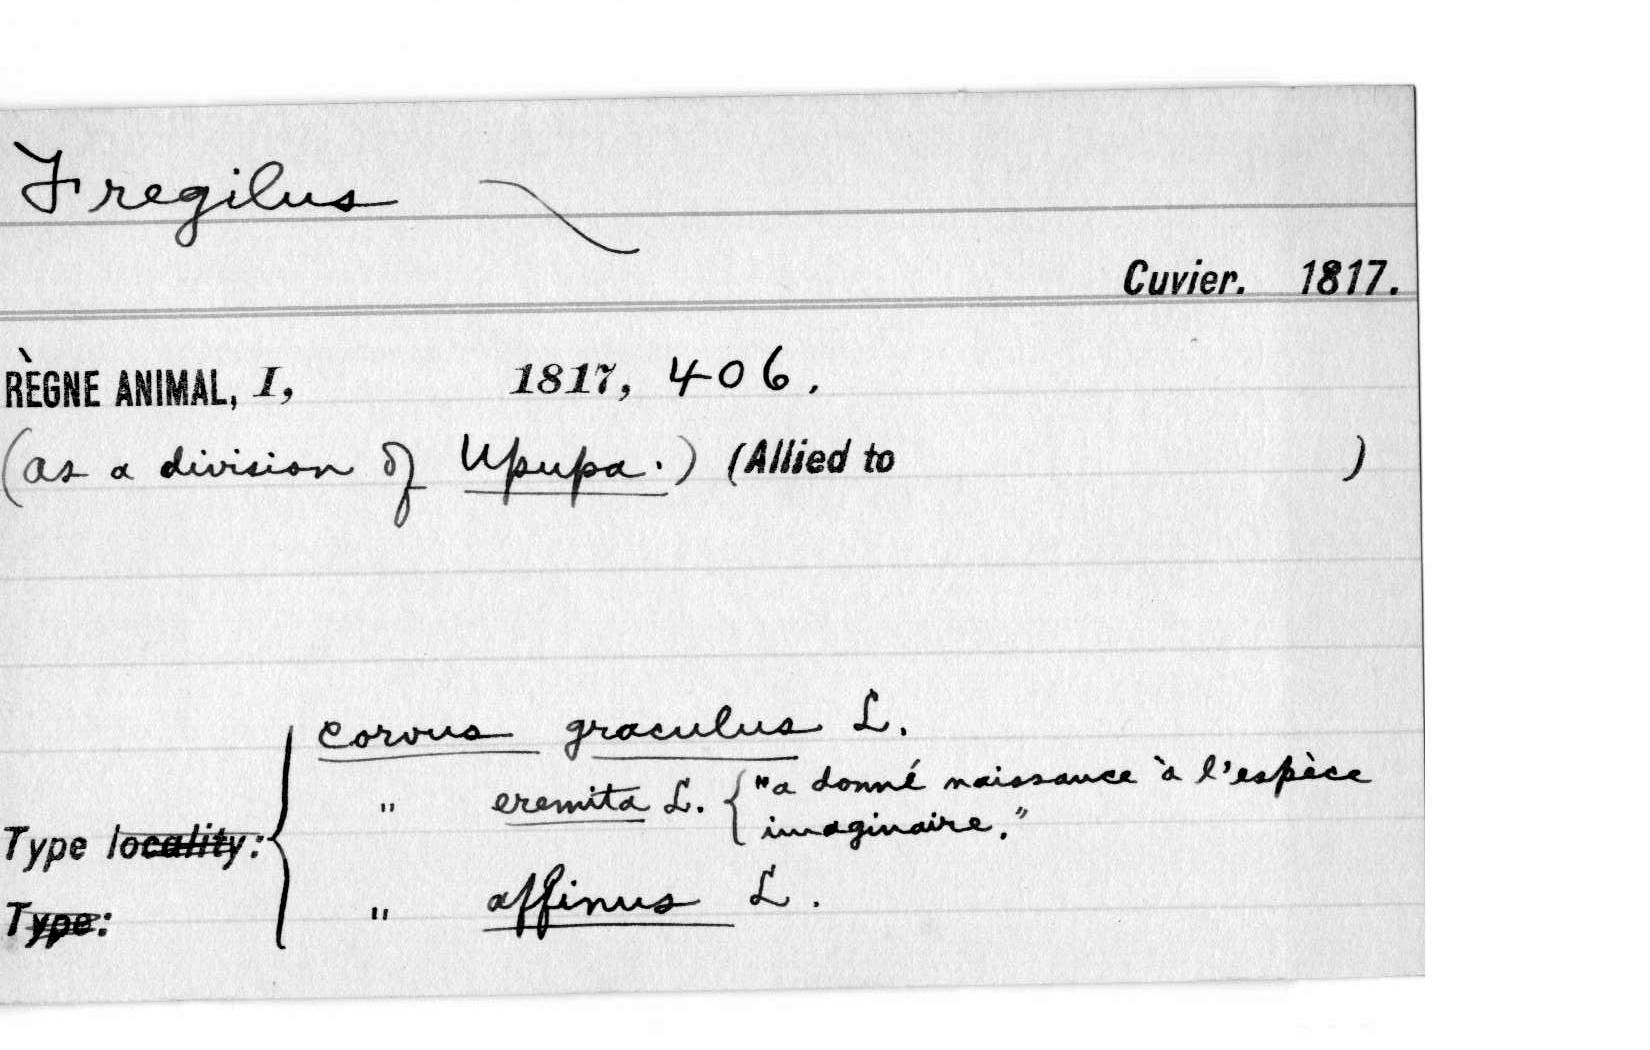 Fregilus
Cuvier. 1817.
RÈGNE ANIMAL, I, 1817, 406.
(as a division of Upupa.) (Allied to )
corvus graculus L.
" eremita L. { "a donné naissance à l'espèce
imaginaire."
Type locality:
" affinus L.
Type: